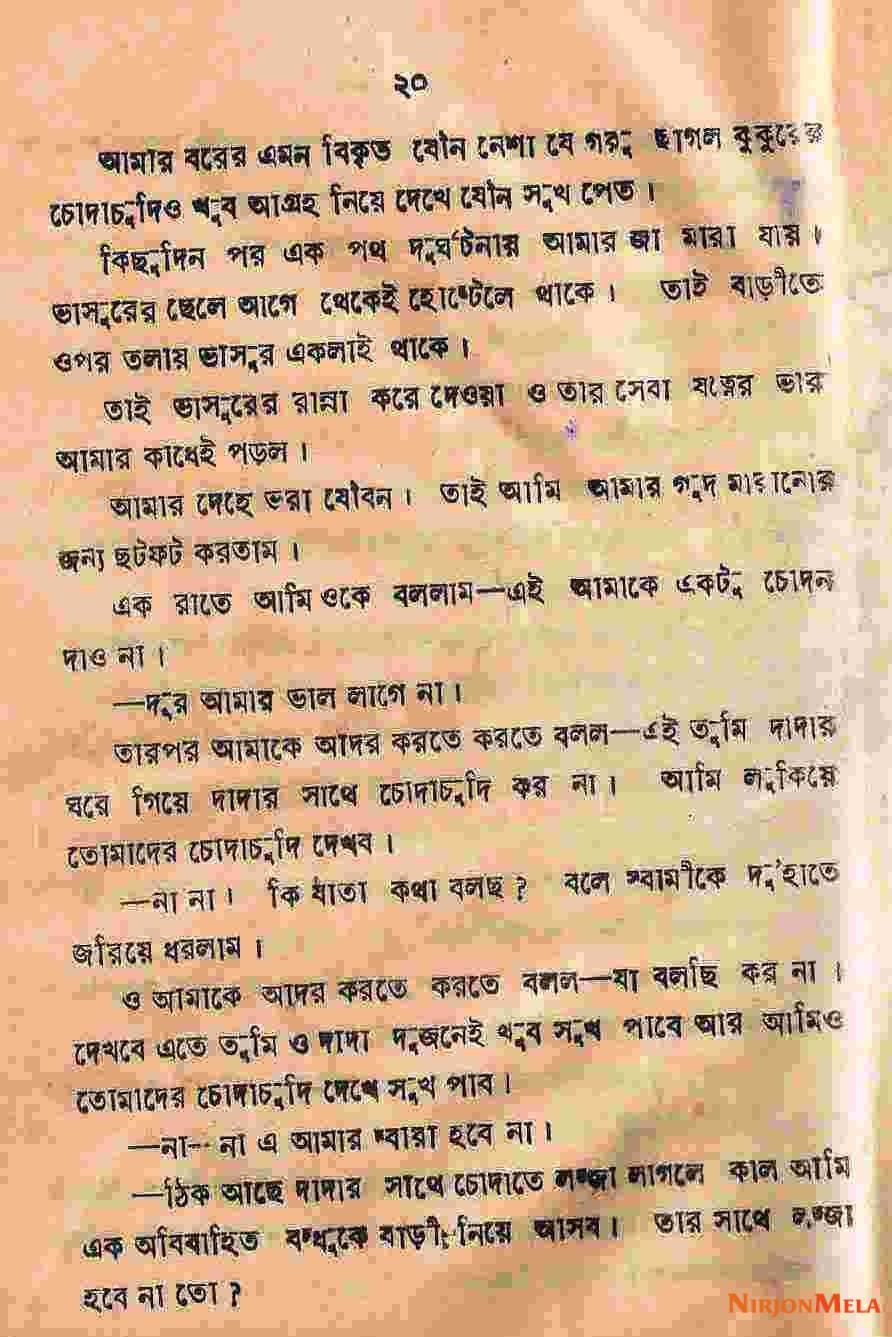 ২০
আমার বরের এমন বিকৃত যৌন নেশা যে গরু ছাগল কুকুরের
চোদাচুদিও খুব আগ্রহ নিয়ে দেখে যৌন সুখ পেত।
কিছুদিন পর এক পথ দুর্ঘটনায় আমার জা মারা যায়।
ভাসুরের ছেলে আগে থেকেই হোস্টেলে থাকে। তাই বাড়ীতে
ওপর তলায় ভাসুর একলাই থাকে।
তাই ভাসুরের রান্না করে দেওয়া ও তার সেবা যত্নের ভার
আমার কাধেই পড়ল।
আমার দেহে ভরা যৌবন। তাই আমি আমার গুদ মারানোর
জন্য ছটফট করতাম।
এক রাতে আমি ওকে বললাম—এই আমাকে একটু চোদন
দাও না।
—দুর আমার ভাল লাগে না।
তারপর আমাকে আদর করতে করতে বলল—এই তুমি দাদার
ঘরে গিয়ে দাদার সাথে চোদাচুদি কর না। আমি লুকিয়ে
তোমাদের চোদাচুদি দেখব।
—না না। কি যাতা কথা বলছ? বলে স্বামীকে দু'হাতে
জরিয়ে ধরলাম।
ও আমাকে আদর করতে করতে বলল—যা বলছি কর না।
দেখবে এতে তুমি ও দাদা দুজনেই খুব সুখ পাবে আর আমিও
তোমাদের চোদাচুদি দেখে সুখ পাব।
—না-- না এ আমার দ্বারা হবে না।
—ঠিক আছে দাদার সাথে চোদাতে লজ্জা লাগলে কাল আমি
এক অবিবাহিত বন্ধুকে বাড়ী নিয়ে আসব। তার সাথে লজ্জা
হবে না তো?
NIRJONMELA